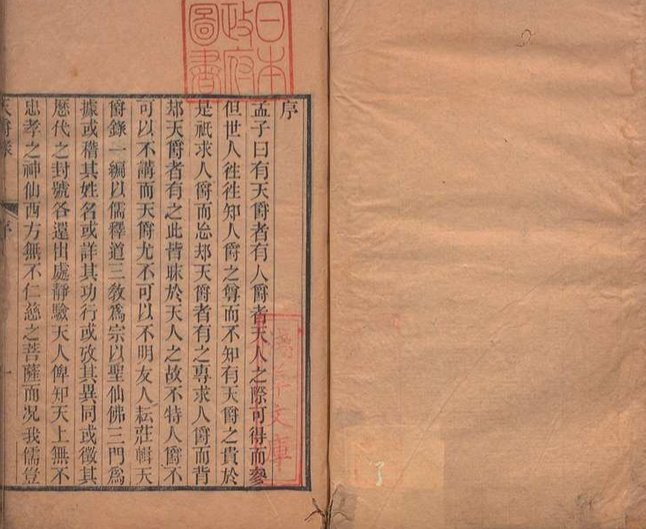 日本
政府
圖書
序
孟子曰有天爵者有人爵者天人之際可得而參
但世人徃徃知人爵之尊而不知有天爵之貴於
是祇求人爵而怠郄天爵者有之專求人爵而背
郄天爵者有之此皆昧於天人之故不特人爵不
可以不講而天爵尤不可以不明友人耘莊輯天
爵錄一編以儒釋道三敎爲宗以聖仙佛三門爲
據或稽其姓名或詳其功行或攷其異同或徵其
歷代之封號各還出處靜驗天人俾知天上無不
忠孝之神仙西方無不仁慈之菩薩而况我儒豈
天爵錄
序
一
淺草文庫